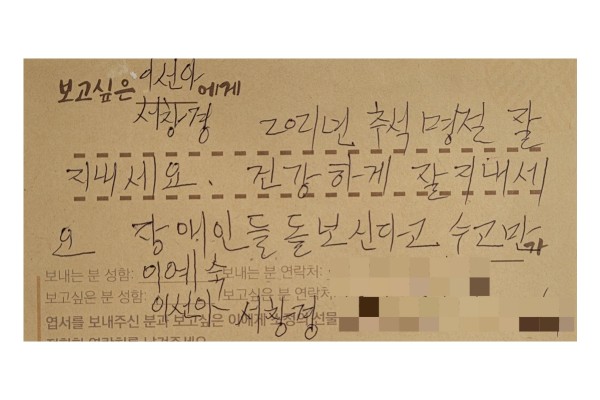 보고싶은 이선아 에게
서창경
20지년 추석 명절 잘
지내세요. 건강하게 잘지내세
요 장애인들 돌보신다고 수고만
보내는 분 성함: 이예숙 보내는 분 연락처:
보고싶은 분 성함: 이선아 서창경 보고싶은 분 연락처
엽서를 보내주신 분과 보고싶은 이에게 선물